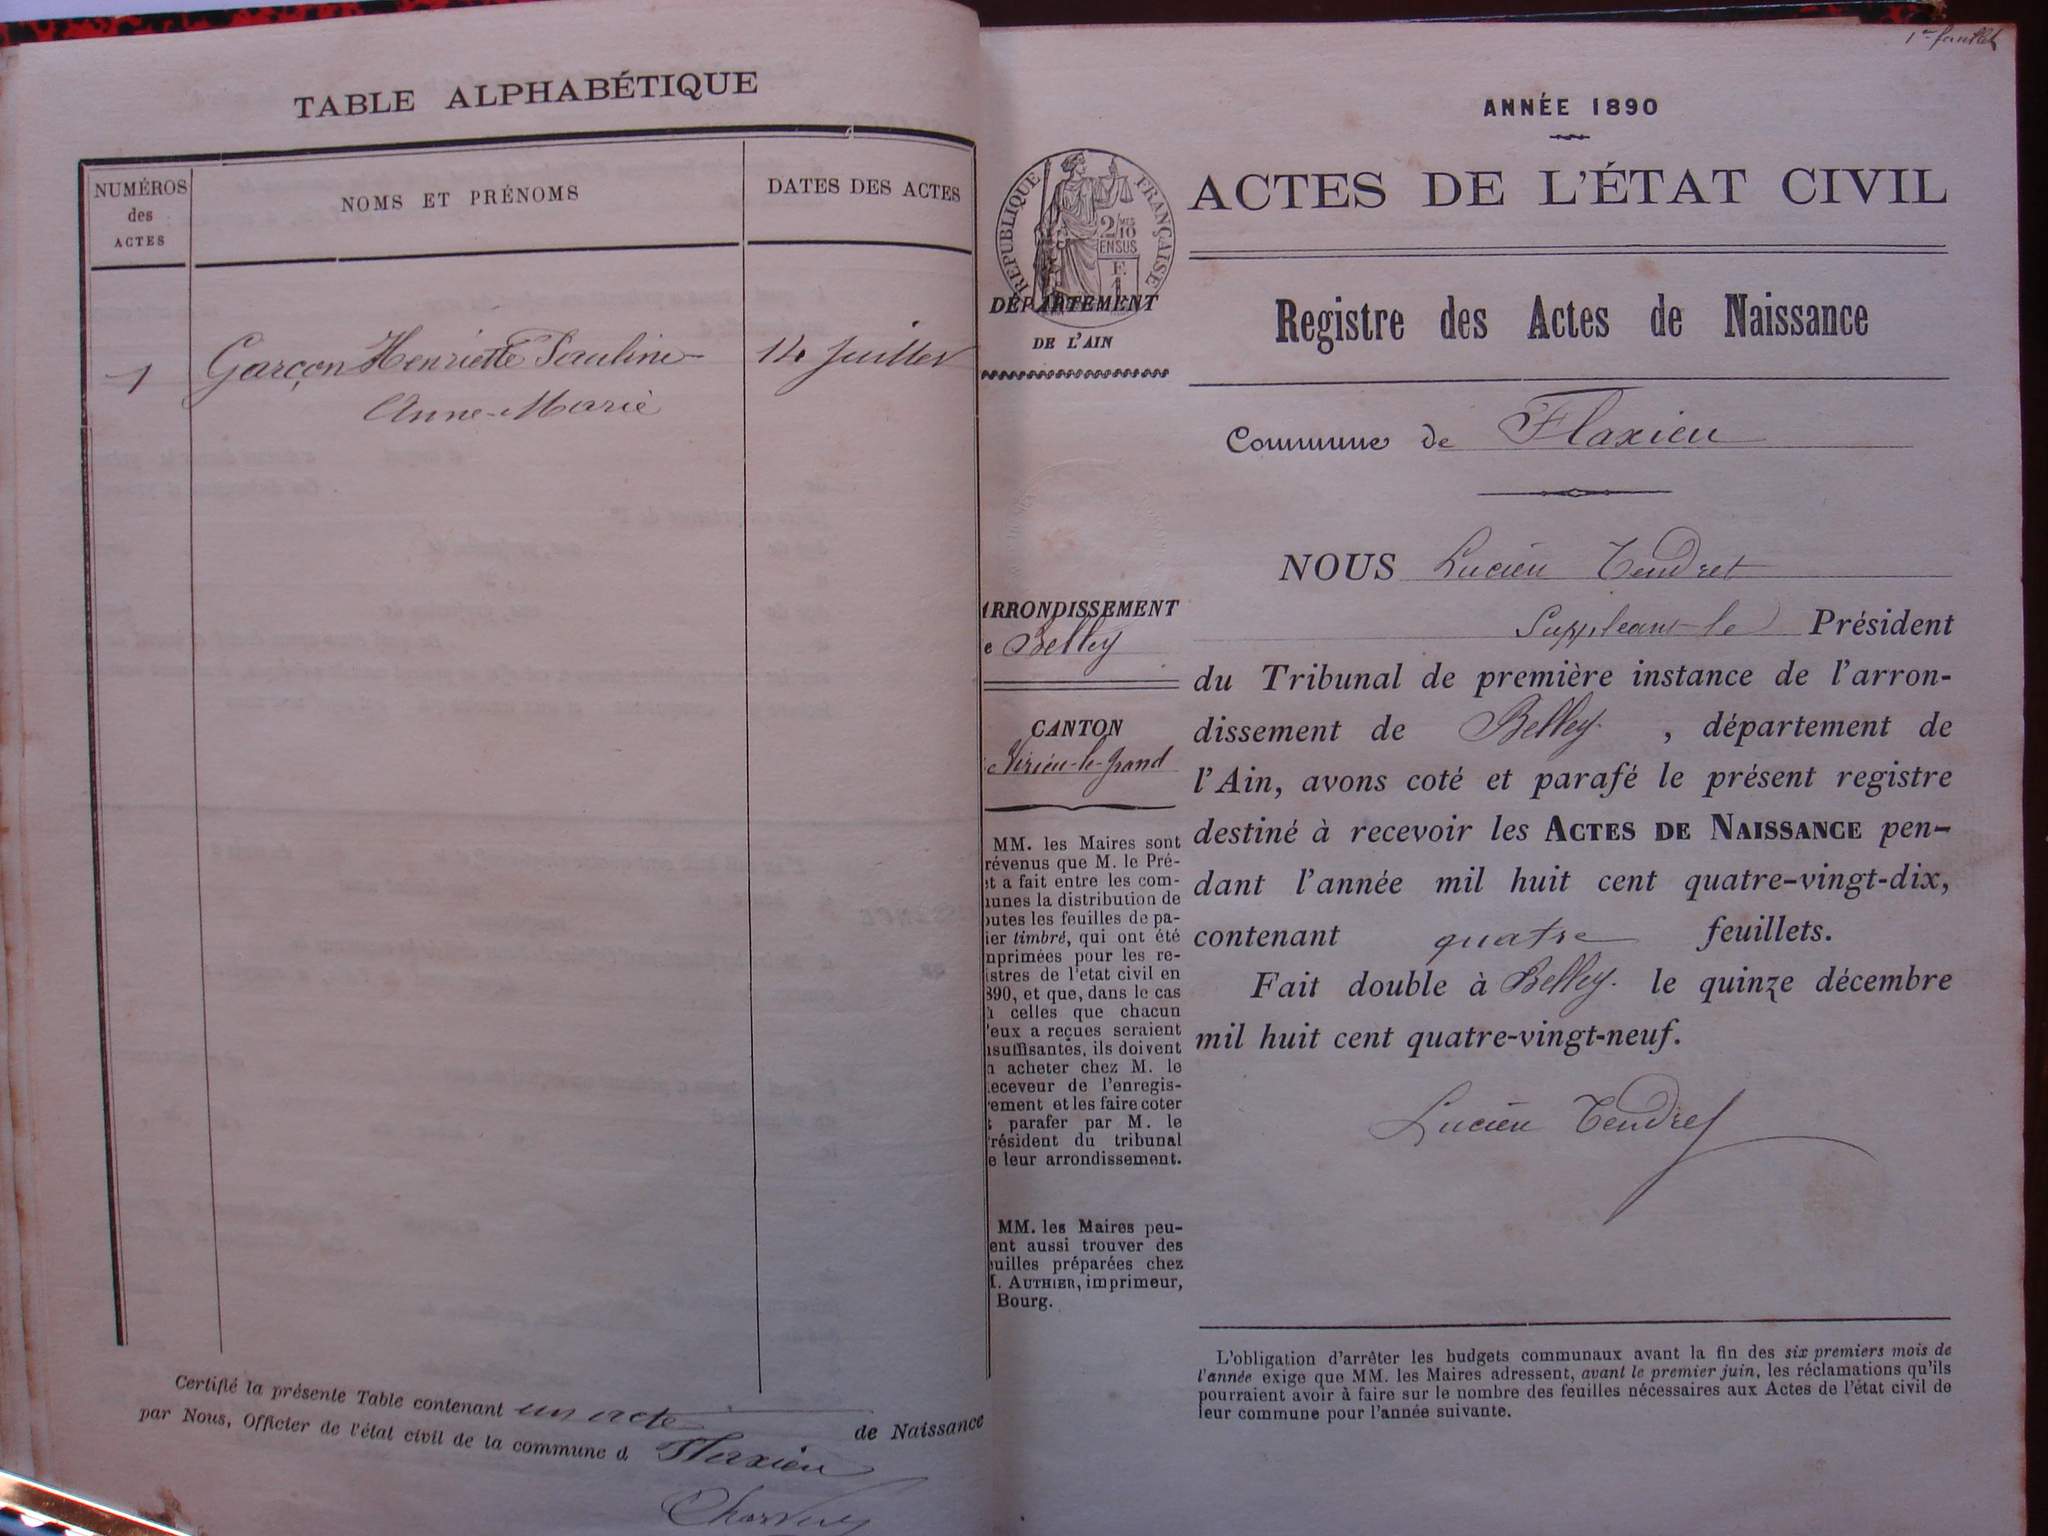 TABLE ALPHABÉTIQUE
NUMÉROS
des
ACTES
NOMS ET PRÉNOMS
DATES DES ACTES
1 Garçon Henriette Pauline 14 Juillet
Anne-Marie
Certifié la présente Table contenant un acte de Naissance
par Nous, Officier de l'état civil de la commune d Flaxieu
1er feuillet
ANNÉE 1890
RÉPUBLIQUE FRANÇAISE
2/10
EN SUS
F.
1
ACTES DE L'ÉTAT CIVIL
DÉPARTEMENT
DE L'AIN
Registre des Actes de Naissance
Commune de Flaxieu
ARRONDISSEMENT
e Belley
CANTON
e Virieu-le-grand
MM. les Maires sont
révenus que M. le Pré-
et a fait entre les com-
unes la distribution de
outes les feuilles de pa-
ier timbré, qui ont été
mprimées pour les re-
istres de l'etat civil en
890, et que, dans le cas
ù celles que chacun
'eux a reçues seraient
nsuffisantes, ils doivent
n acheter chez M. le
eceveur de l'enregis-
rement et les faire coter
t parafer par M. le
résident du tribunal
e leur arrondissement.
MM. les Maires peu-
ent aussi trouver des
euilles préparées chez
M. AUTHIER, imprimeur,
Bourg.
NOUS Lucien Tendret
Suppléant le Président
du Tribunal de première instance de l'arron-
dissement de Belley , département de
l'Ain, avons coté et parafé le présent registre
destiné à recevoir les ACTES DE NAISSANCE pen-
dant l'année mil huit cent quatre-vingt-dix,
contenant quatre feuillets.
Fait double à Belley. le quinze décembre
mil huit cent quatre-vingt-neuf.
Lucien Tendret
L'obligation d'arrêter les budgets communaux avant la fin des six premiers mois de
l'année exige que MM. les Maires adressent, avant le premier juin, les réclamations qu'ils
pourraient avoir à faire sur le nombre des feuilles nécessaires aux Actes de l'état civil de
leur commune pour l'année suivante.